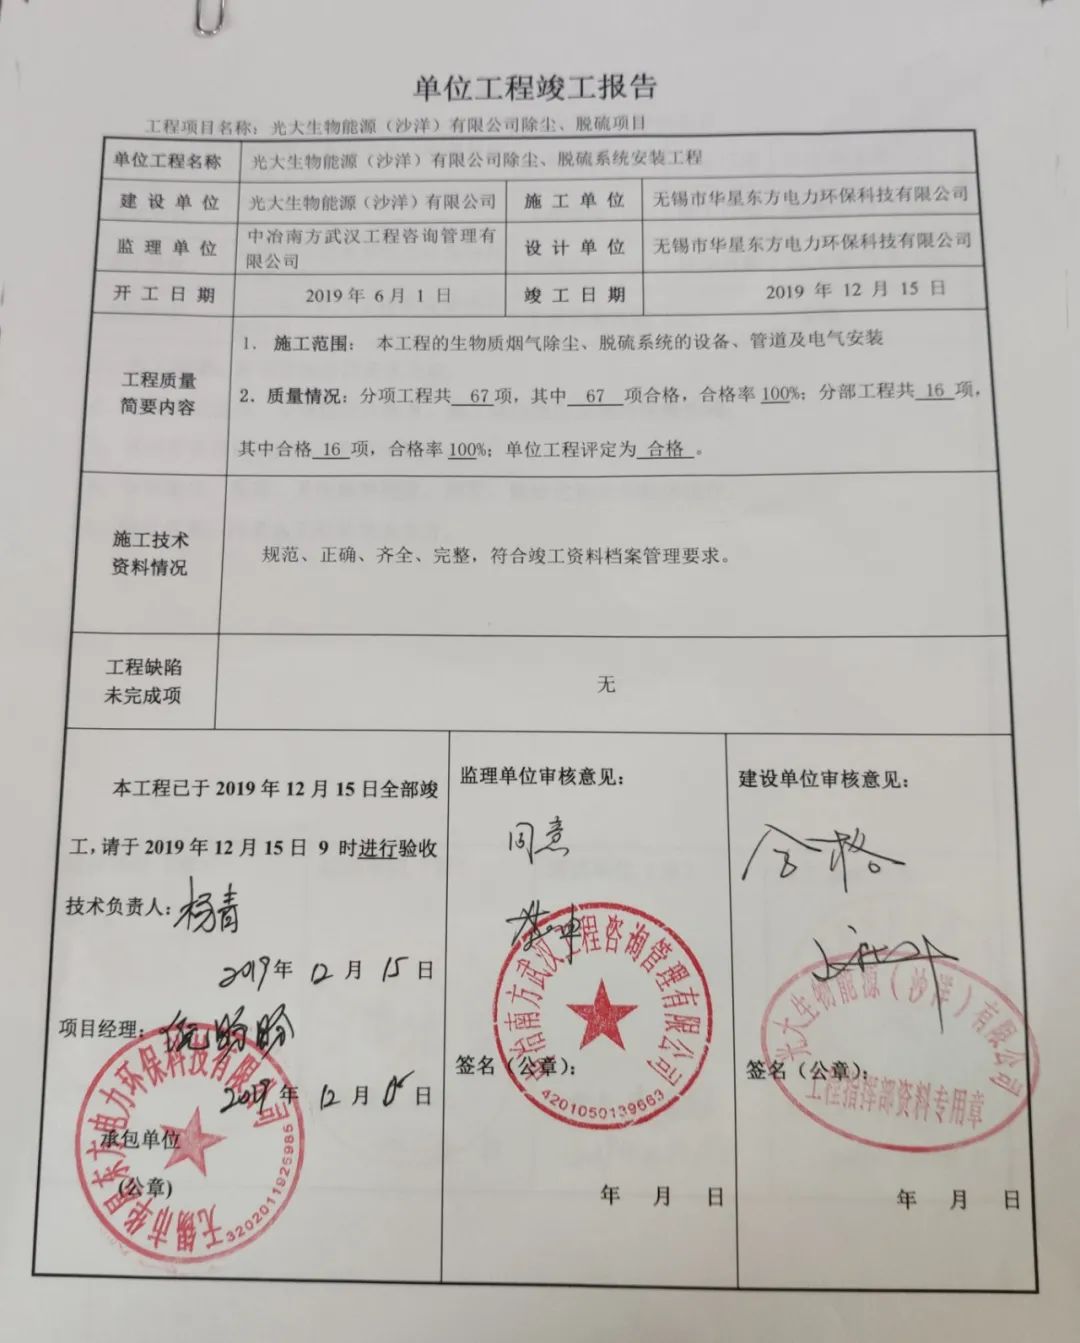 单位工程竣工报告
工程项目名称：光大生物能源（沙洋）有限公司除尘、脱硫项目
单位工程名称 光大生物能源（沙洋）有限公司除尘、脱硫系统安装工程
建设单位 光大生物能源（沙洋）有限公司 施工单位 无锡市华星东方电力环保科技有限公司
监理单位 中冶南方武汉工程咨询管理有
限公司 设计单位 无锡市华星东方电力环保科技有限公司
开工日期 2019年6月1日 竣工日期 2019年12月15日
工程质量
简要内容
1. 施工范围： 本工程的生物质烟气除尘、脱硫系统的设备、管道及电气安装
2. 质量情况：分项工程共 67 项，其中 67 项合格，合格率 100%；分部工程共 16 项，
其中合格 16 项，合格率 100%；单位工程评定为 合格 。
施工技术
资料情况
规范、正确、齐全、完整，符合竣工资料档案管理要求。
工程缺陷
未完成项
无
本工程已于2019年12月15日全部竣
工，请于2019年12月15日 9 时进行验收
技术负责人：杨青
2019年12月15日
项目经理：
2019年12月15日
承包单位
(公章)
无锡市华星东方电力环保科技有限公司
3202011925985
监理单位审核意见：
同意
签名（公章）：
中冶南方武汉工程咨询管理有限公司
4201050139663
年 月 日
建设单位审核意见：
合格
签名（公章）：
光大生物能源（沙洋）有限公司
工程指挥部资料专用章
年 月 日